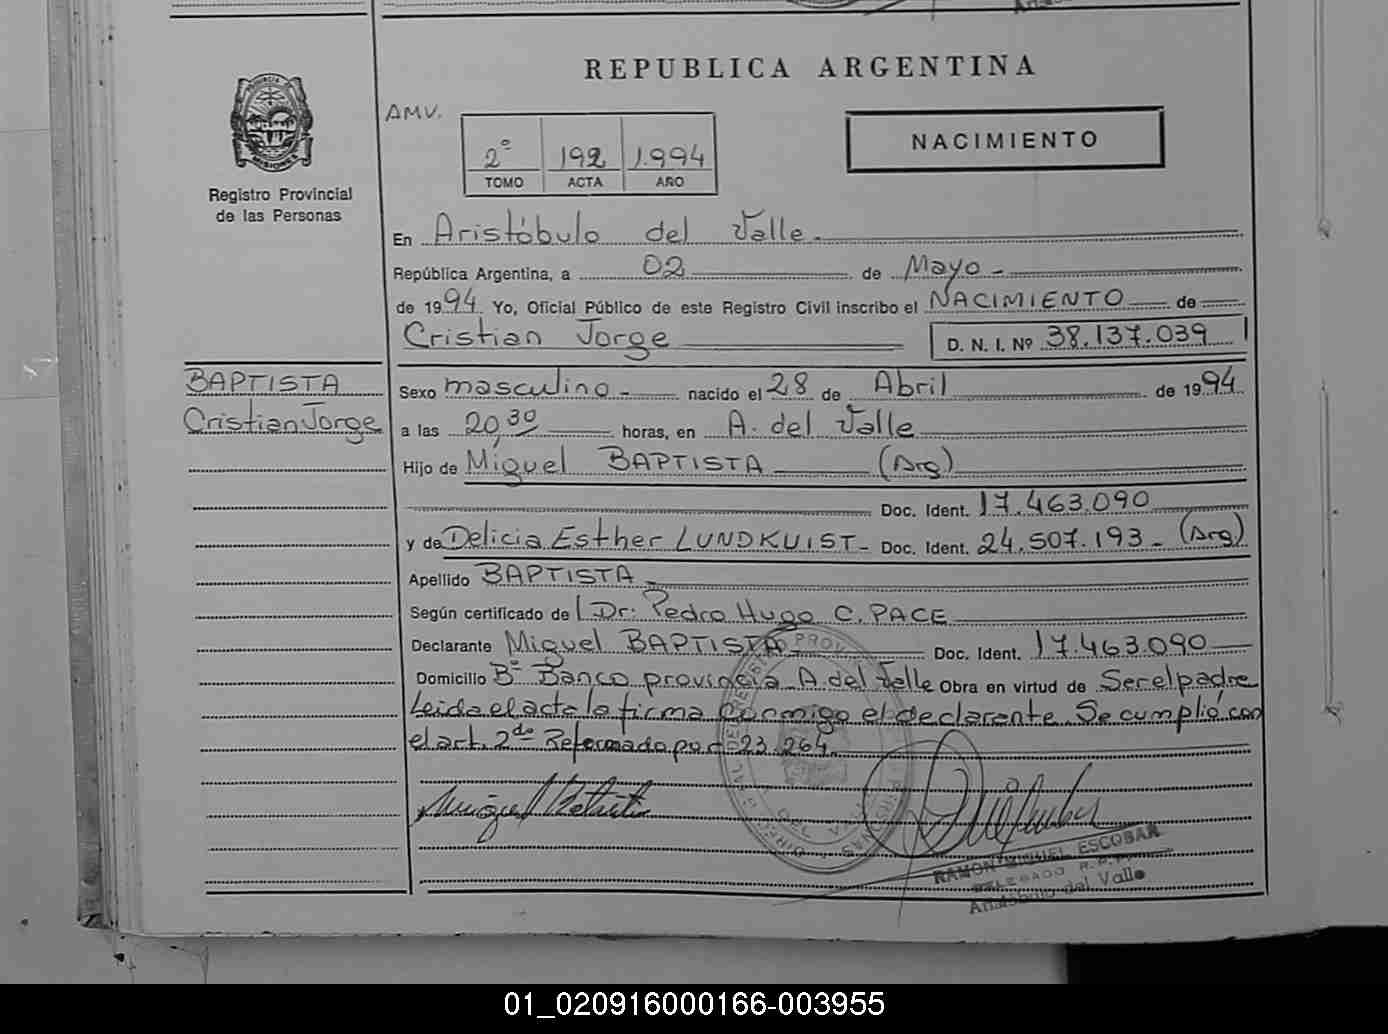 REPUBLICA ARGENTINA
PROVINCIA DE
MISIONES
Registro Provincial
de las Personas
AMV.
2° 192 1.994
TOMO ACTA AÑO
NACIMIENTO
En Aristóbulo del Valle.
República Argentina, a 02 de Mayo -
de 1994 Yo, Oficial Público de este Registro Civil inscribo el NACIMIENTO de
Cristian Jorge D. N. I. Nº 38.137.039
BAPTISTA
Cristian Jorge
Sexo masculino - nacido el 28 de Abril de 1994
a las 20,30 horas, en A. del Valle
Hijo de Miguel BAPTISTA (Arg)
Doc. Ident. 17.463.090
y de Delicia Esther LUNDKUIST - Doc. Ident. 24.507.193 - (Arg)
Apellido BAPTISTA -
Según certificado de Dr: Pedro Hugo C. PACE
Declarante Miguel BAPTISTA - Doc. Ident. 17.463.090
Domicilio B° Banco provincia A. del Valle Obra en virtud de Ser el padre
Leida el acta la firma conmigo el declarante. Se cumplió con
el art. 2do Reformado por 23.264.
RAMON MIGUEL ESCOBAR
DELEGADO R.P.P.
Aristóbulo del Valle
01_020916000166-003955